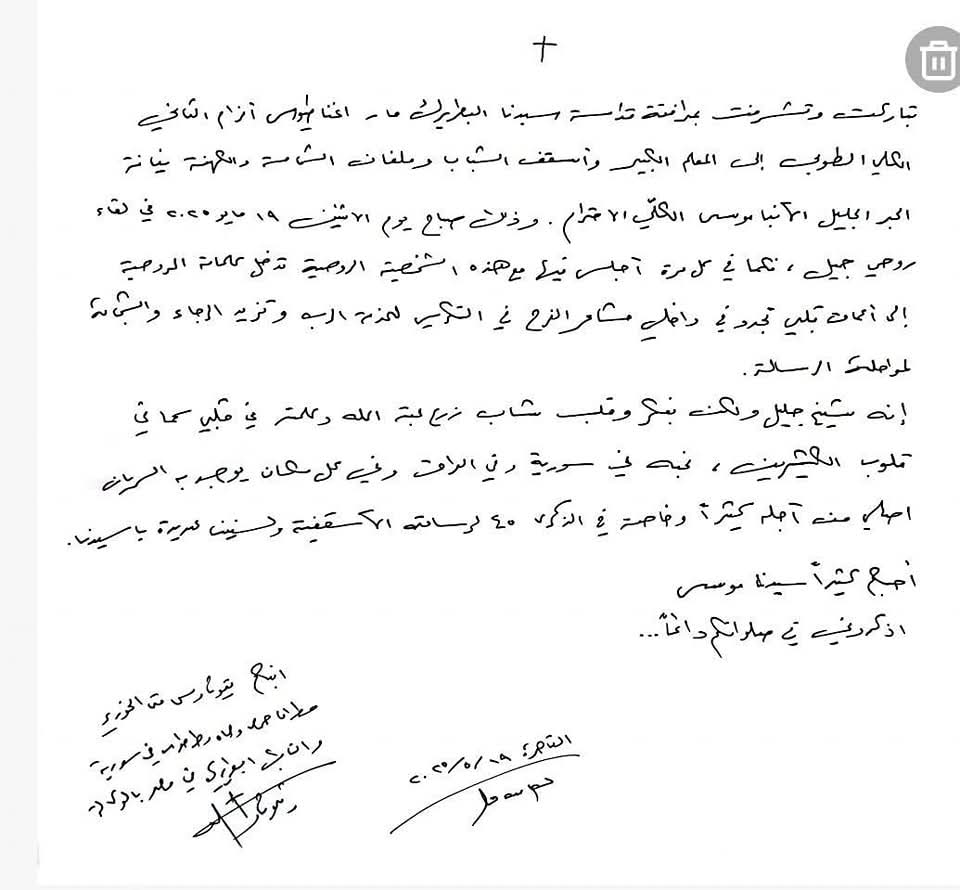 تباركت وتشرفت بمرافقة قداسة سيدنا البطريرك مار اغناطيوس أفرام الثاني
الكلي الطوبى إلى المعلم الكبير وأسقف الشباب وملفان الشمامسة والكهنة نيافة
الحبر الجليل الأنبا موسى الكلّي الاحترام. وذلك صباح يوم الاثنين ١٩ مايو ٢٠٢٥ في لقاء
روحي جميل، فكما في كل مرة أجلس فيها مع هذه الشخصية الروحية تدخل كلماته الروحية
إلى أعماق قلبي تجدد في داخلي مشاعر الفرح في التكريس لخدمة الرب وتزيد الرجاء والشجاعة
لمواصلة الرسالة.
إنه شيخ جليل ولكن بفكر وقلب شاب زرع محبة الله وكلمته في قلبي كما في
قلوب الكثيرين، نحبه في سورية وفي العراق وفي كل مكان يوجد به السريان
اصلي من أجله كثيراً وخاصة في الذكرى ٤٥ لرسامته الأسقفية ولسنين عديدة يا سيدنا.
أحبكم كثيراً سيدنا موسى
اذكروني في صلواتكم دائماً...
القاهرة ١٩/٥/٢٠٢٥
متى الخوري
مطران حمص وحماه وطرطوس في سورية
والنائب البطريركي في مصر بالوكالة